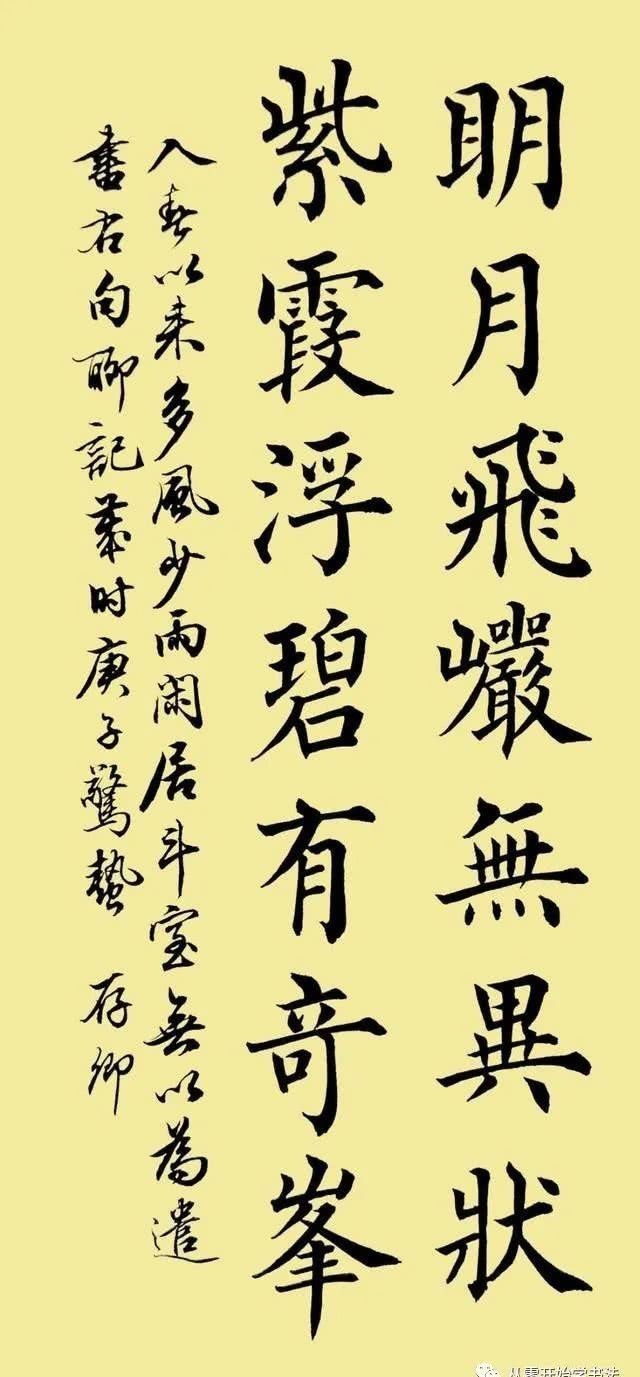 明月飛巖無異狀
紫霞浮碧有奇峯
入春以来多風少雨閑居斗室無以為遣
書右句聊記歲时庚子驚蟄 存卿
从零开始学书法